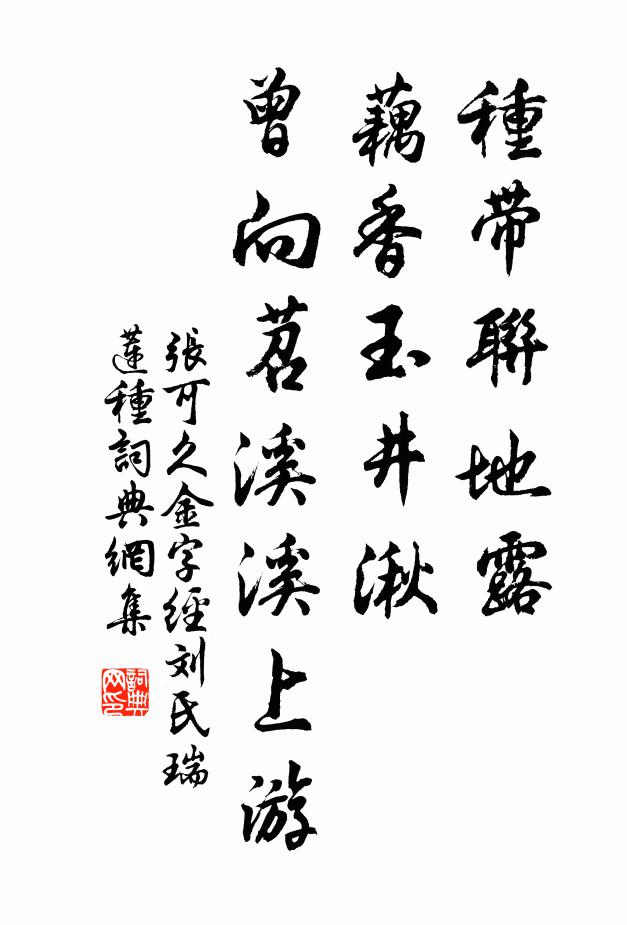 種帶聯地露
藕香玉井湫
曾向苕溪溪上游
張可久金字經刘氏瑞
蓮種詞典網集
詞典
网印